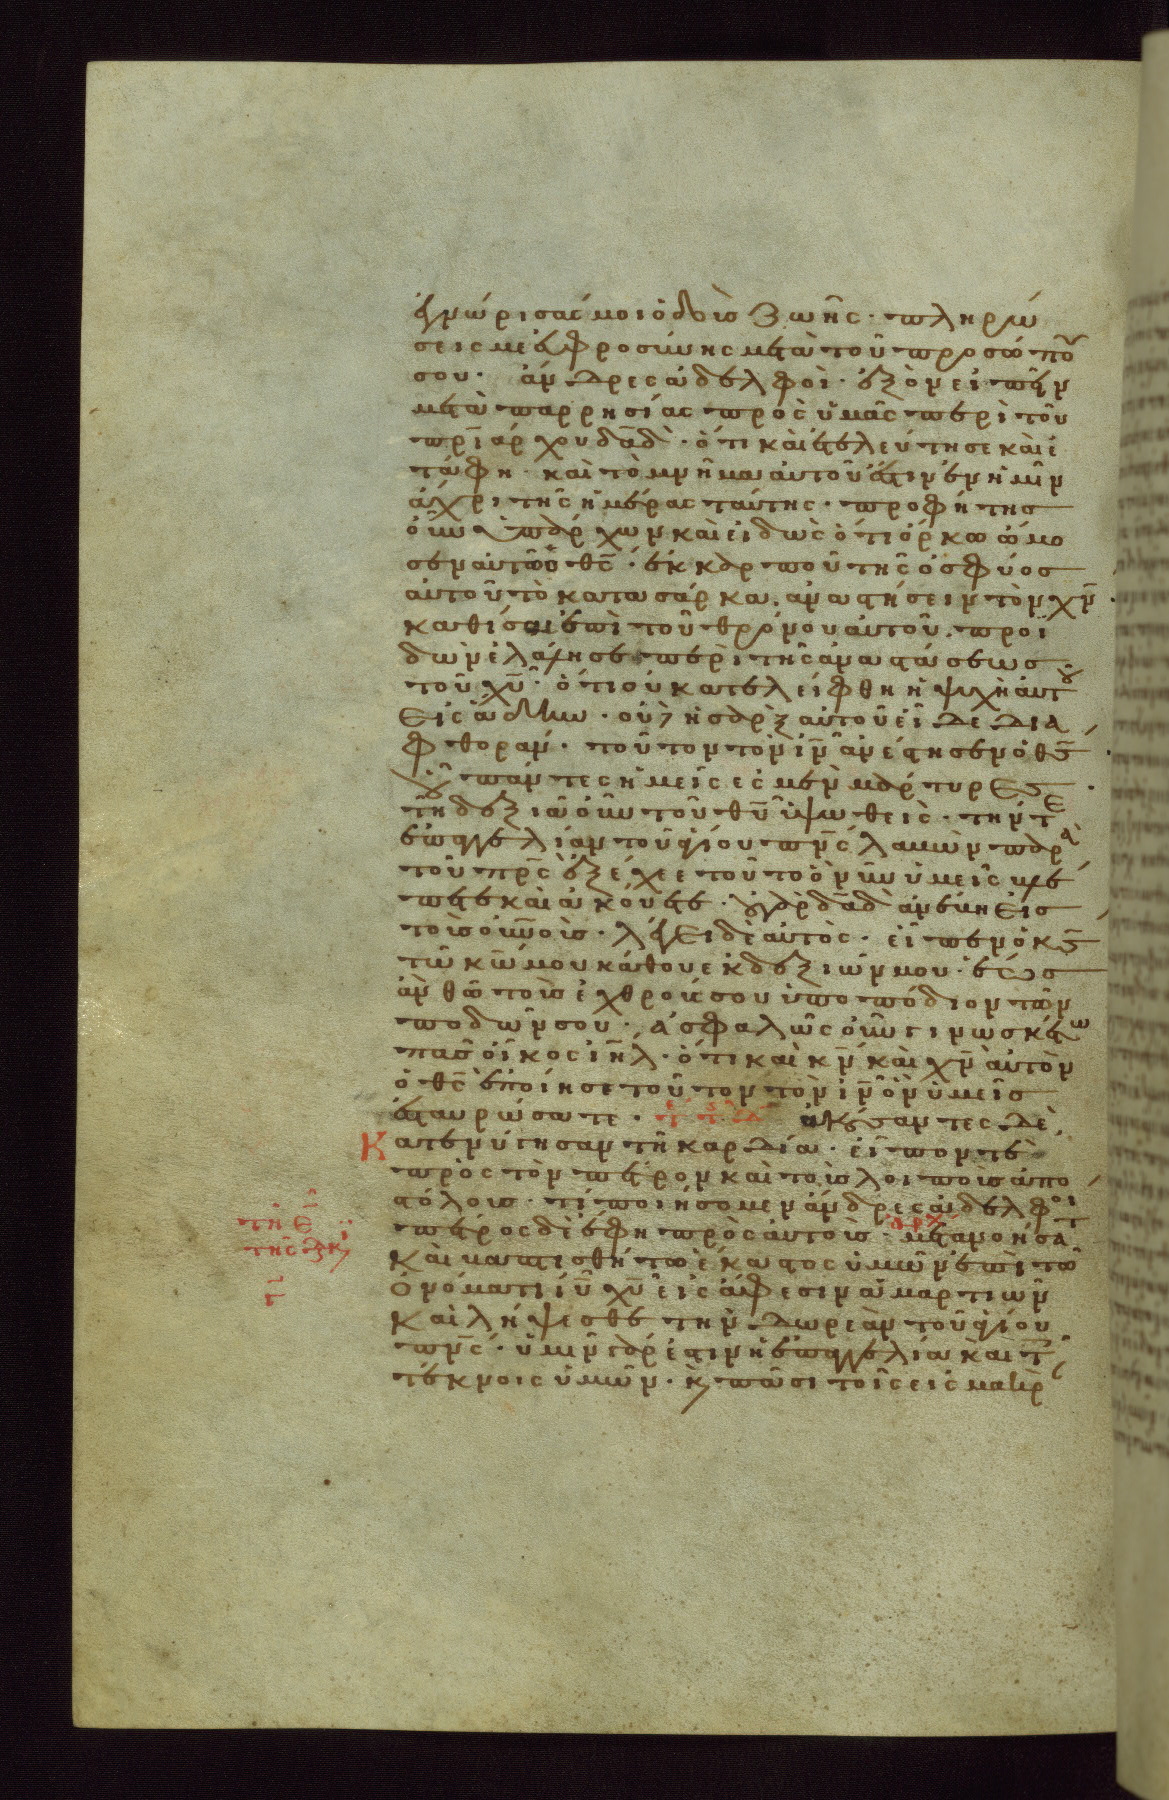 ἐγνώρισάς μοι ὁδοὺς ζωῆς· πληρώ
σεις με εὐφροσύνης μετὰ τοῦ προσώπου
σου· ἄνδρες ἀδελφοὶ· ἐξὸν εἰπεῖν
μετὰ παρρησίας πρὸς ὑμᾶς περὶ τοῦ
πρϊάρχου δᾱδ· ὅτι καὶ ἐτελεύτησε καὶ ἐ
τάφη καὶ τὸ μνῆμα αὐτοῦ ἐστιν ἐν ἡμῖν
ἄχρι τῆς ἡμέρας ταύτης· προφήτης
οὖν ὑπάρχων καὶ εἰδὼς ὅτι ὅρκω ὤμο
σεν αὐτῶ ὁ θς· ἐκ καρποῦ τῆς ὀσφύος
αὐτοῦ τὸ κατα σάρκα ἀναστήσειν τὸν χν
καθίσαι ἐπὶ τοῦ θρόνου αὐτοῦ. προϊ
δὼν ἐλάλησε περὶ τῆς ἀναστάσεως
τοῦ χυ· ὅτι οὐ κατελείφθη ἡ ψυχὴ αὐτου
εἰς ἅδην· οὐδὲ ἡ σὰρξ αὐτοῦ εἶδε δια
φθοράν· τοῦτον τὸν ιν ἀνέστησεν ὁ θς
οὗ πάντες ἡμεῖς ἐσμὲν μάρτυρες
τῆ δεξιᾶ οὖν τοῦ θυ ὑψωθεὶς· τήν τε
ἐπαγγελίαν τοῦ ἁγίου πνς λαβὼν παρὰ
τοῦ πρς ἐξέχεε τοῦτο ὃ νῦν ὑμεῖς βλέ
πετε καὶ ἀκούετε· οὐ γὰρ δᾱδ ἀνέβη εἰς
τοὺς οὐνοὺς· λέγει δὲ αὐτὸς· εἶπεν ὁ κς
τῶ κω μου κάθου ἐκ δεξιῶν μου· ἕως
ἂν θῶ τοὺς ἐχθρούς σου ὑποπόδιον τῶν
ποδῶν σου· ἀσφαλῶς οὖν γινωσκέτω
πᾶς οἶκος ιηλ· ὅτι καὶ κν καὶ χν αὐτὸν
ὁ θς ἐποίησε τοῦτον τὸν ιν ὃν ὑμεῖς
ἐσταυρώσατε· ἀκούσαντες δὲ
Κατενύγησαν τῆ καρδία· εἶπον τε
πρὸς τὸν πέτρον καὶ τοὺς λοιποὺς ἀπο
στόλους· τί ποιήσομεν ἄνδρες ἀδελφοι
πέτρος δὲ ἔφη πρὸς αὐτούς· μετανοήσατ
Καὶ βαπτισθήτω ἕκαστος ὑμῶν ἐπὶ τῶ
ὀνόματι ιυ χυ εἰς ἄφεσιν ἁμαρτιῶν
Καὶ λήψεσθε τὴν δωρεὰν τοῦ ἁγίου
πνς· ὑμῖν γάρ ἐστιν ἡ ἐπαγγελία καὶ τ
τέκνοις ὑμῶν· κ πᾶσι τοῖς εἰς μακρ